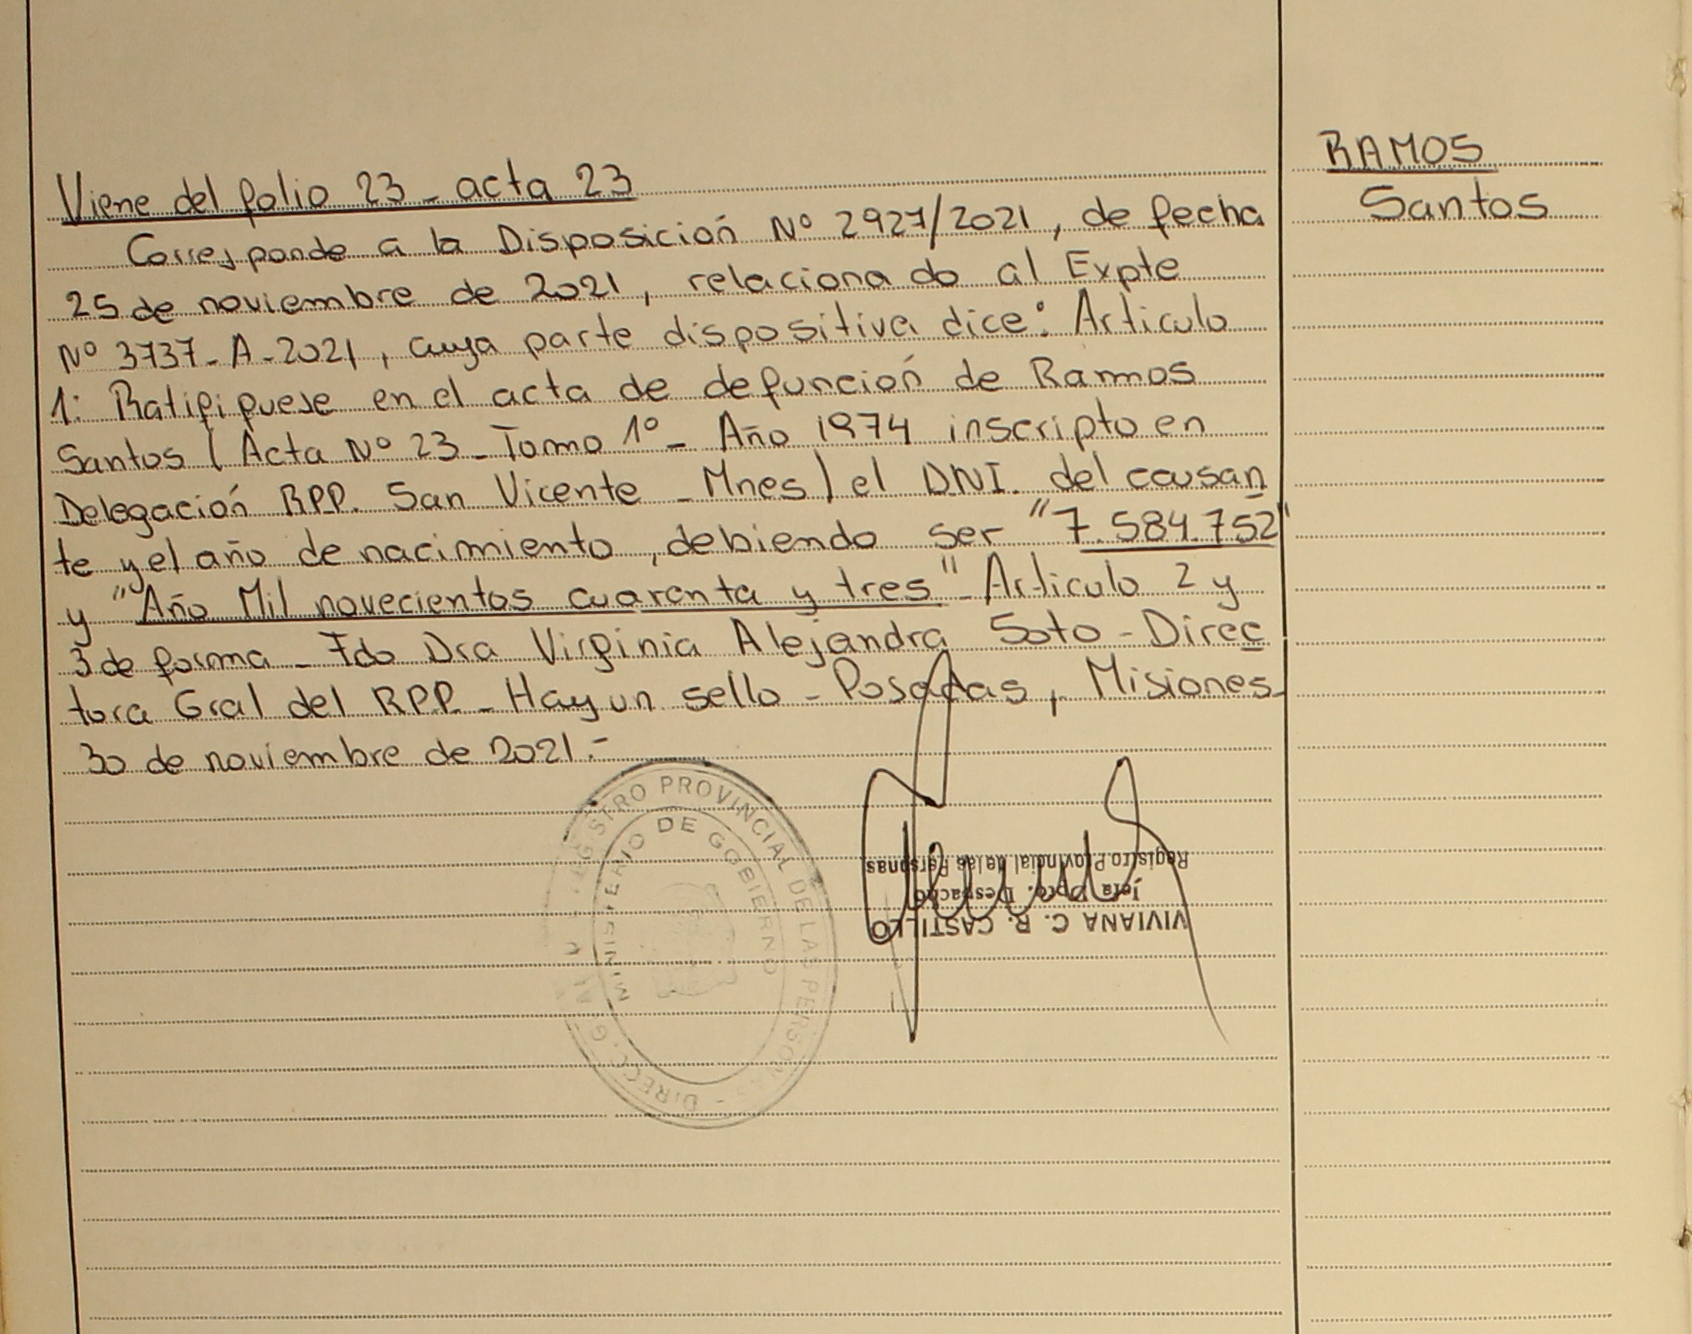 Viene del folio 23 - acta 23
Corresponde a la Disposición Nº 2927/2021, de fecha
25 de noviembre de 2021, relacionado al Expte
Nº 3737-A-2021, cuya parte dispositiva dice: Articulo
1: Ratifiquese en el acta de defunción de Ramos
Santos (Acta Nº 23 - Tomo 1º - Año 1974 inscripto en
Delegación RPP. San Vicente - Mnes) el DNI. del causan
te y el año de nacimiento, debiendo ser "7.584.752"
y "Año Mil novecientos cuarenta y tres" - Articulo 2 y
3 de forma - Fdo Dra Virginia Alejandra Soto - Direc
tora Gral del RPP - Hay un sello - Posadas, Misiones
30 de noviembre de 2021.-
RAMOS
Santos
REGISTRO PROVINCIAL DE LAS PERSONAS - DIRECC. G
MINISTERIO DE GOBIERNO
VIVIANA C. R. CASTILLO
Jefa Dpto. Despacho
Registro Provincial de las Personas